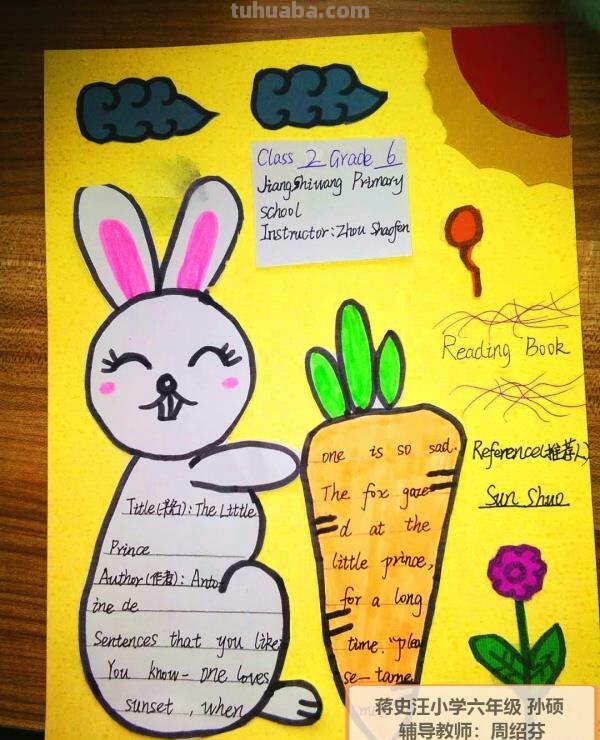 tuhuaba.com
Class 2 Grade 6
JiangShiwang Primary
school
Instructor: Zhou Shaofen
Reading Book
Reference(推荐人)
Sun Shuo
Title(书名): The Little
Prince
Author(作者): Anto
ine de
Sentences that you like:
You know- one loves
sunset, when
one is so sad.
The fox gaze
d at the
little prince,
for a long
time. "plea
se- tame
蒋史汪小学六年级 孙硕
辅导教师：周绍芬